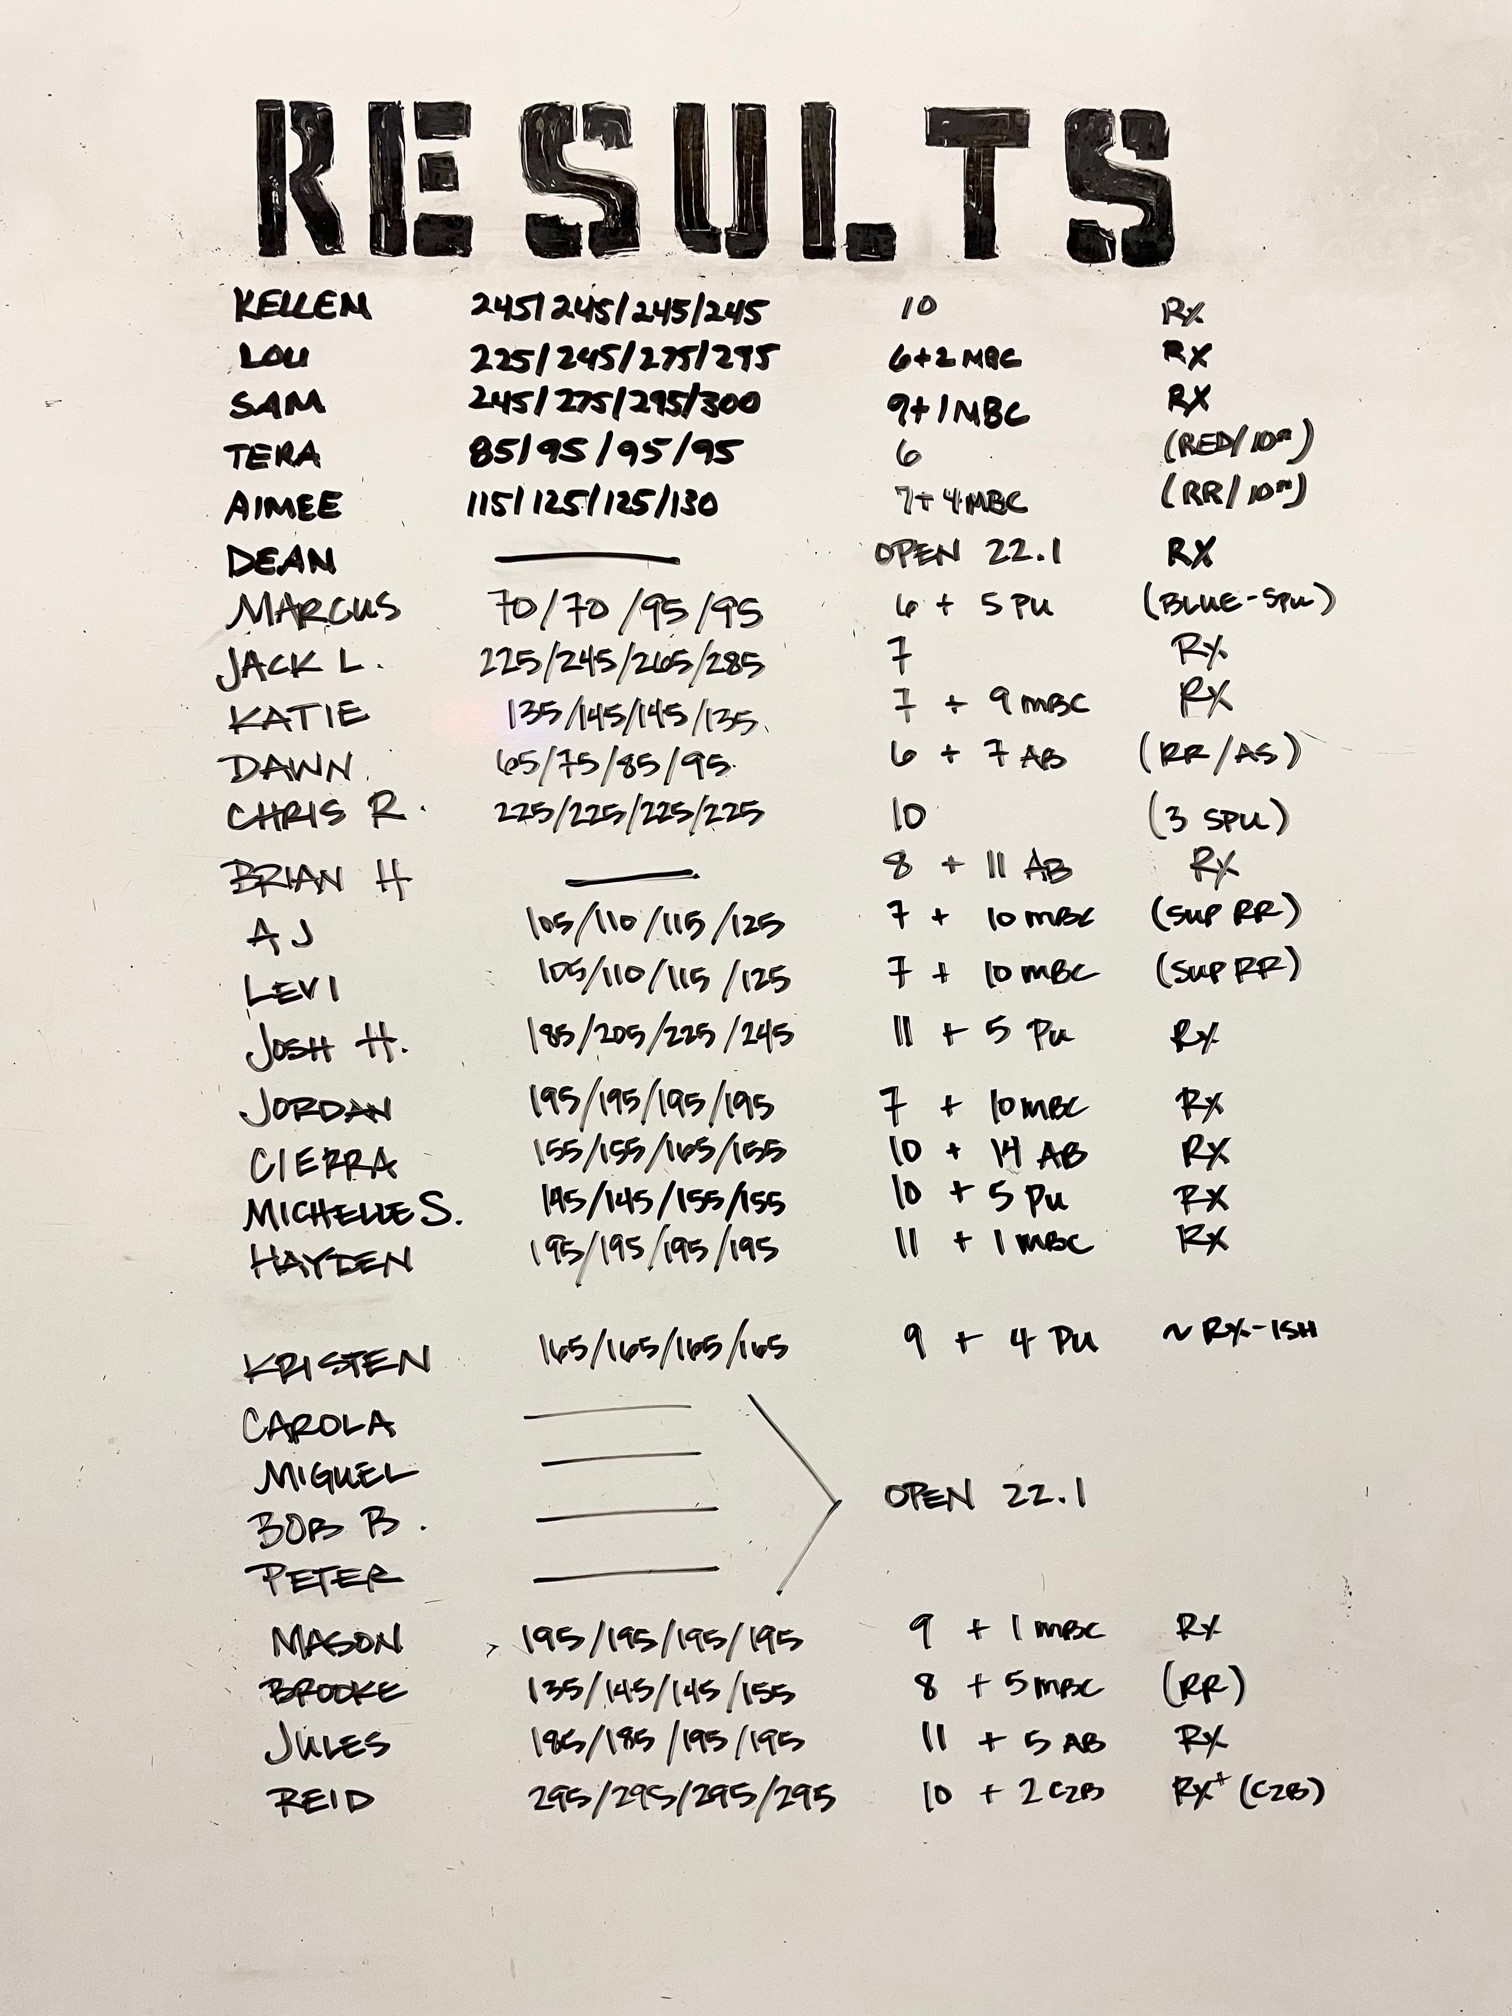 RESULTS
KELLEM 245/245/245/245 10 Rx
LOU 225/245/275/295 6+2 MBC RX
SAM 245/275/295/300 9+1 MBC RX
TERA 85/95/95/95 6 (RED/10m)
AIMEE 115/125/125/130 7+4 MBC (RR/10m)
DEAN — OPEN 22.1 RX
MARCUS 70/70/95/95 6 + 5 PU (BLUE-SPU)
JACK L. 225/245/265/285 7 Rx
KATIE 135/145/145/135 7 + 9 MBC RX
DAWN 65/75/85/95 6 + 7 AB (RR/AS)
CHRIS R. 225/225/225/225 10 (3 SPU)
BRIAN H — 8 + 11 AB RX
AJ 105/110/115/125 7 + 10 MBC (SUP RR)
LEVI 105/110/115/125 7 + 10 MBC (SUP RR)
JOSH H. 185/205/225/245 11 + 5 PU RX
JORDAN 195/195/195/195 7 + 10 MBC RX
CIERRA 155/155/165/155 10 + 14 AB RX
MICHELLE S. 145/145/155/155 10 + 5 PU RX
HAYDEN 195/195/195/195 11 + 1 MBC RX
KRISTEN 165/165/165/165 9 + 4 PU ~ RX-ISH
CAROLA —
MIGUEL — OPEN 22.1
BOB B. —
PETER —
MASON 195/195/195/195 9 + 1 MBC RX
BROOKE 135/145/145/155 8 + 5 MBC (RR)
JULES 185/185/195/195 11 + 5 AB RX
REID 295/295/295/295 10 + 2 C2B RX+ (C2B)